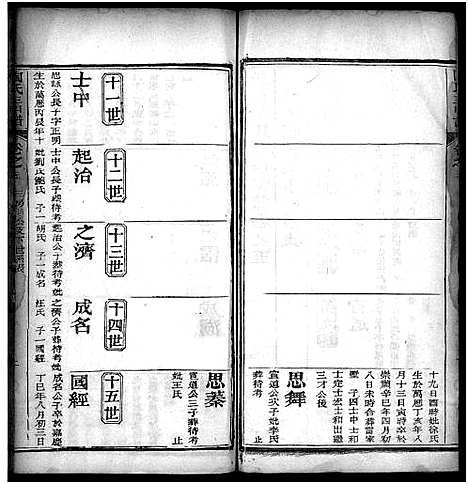 十九日酉時妣徐氏
生於萬厯丁亥年八
月十三日寅時卒於
崇禎辛巳年四月初
八日未時合葬雷家
墾子四士中士和
士定士宏士和出繼
三才公後
思舞
宣道公次子妣李氏
葬待考
思蓁
宣道公三子葬待考
妣王氏
止
十一世
士中
思詠公長子字正明
生於萬厯丙辰年十
十二世
起治
士中公長子葬待考
妣劉氏鮑氏 子一
十三世
之濟
起治公子葬待考妣
胡氏 子一成名
十四世
成名
之濟公子葬待考妣
汪氏 子一國經
十五世
國經
成名公子卒於嘉慶
丁巳年八月初三日